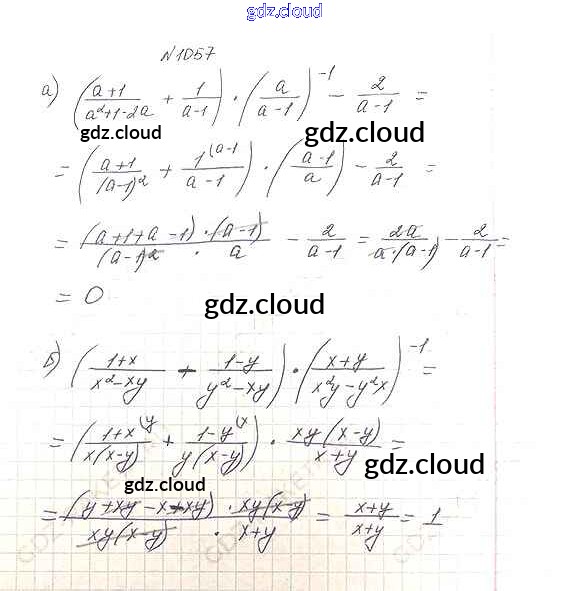 gdz.cloud
N1057
а) ((a+1)/(a²+1-2a) + 1/(a-1)) · (a/(a-1))⁻¹ - 2/(a-1) =
gdz.cloud gdz.cloud
= ((a+1)/(a-1)² + 1^(a-1/(a-1)) · ((a-1)/a) - 2/(a-1) =
= (a+1+a-1)·(a-1)/(a-1)² · a - 2/(a-1) = 2a/a·(a-1) - 2/(a-1) =
= 0
gdz.cloud
б) ((1+x)/(x²-xy) + (1-y)/(y²-xy)) · ((x+y)/(x²y-y²x))⁻¹ =
= (1+x^(y/x(x-y) + 1-y^(x/y(x-y)) · xy(x-y)/(x+y) =
gdz.cloud
gdz.cloud
= (y+xy-x+xy) · xy(x-y)/xy(x-y) · x+y = (x+y)/(x+y) = 1
gdz.cloud